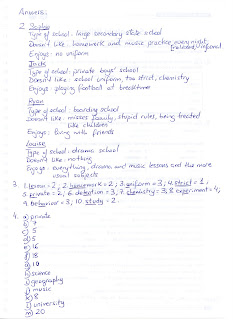 Answers:
2. Sophie
Type of school: large secondary state school
Doesn't like: homework and music practice every night
Enjoys: no uniform
Jack
Type of school: private boys' school
Doesn't like: school uniform, too strict, chemistry
Enjoys: playing football at breaktime
Ryan
Type of school: boarding school
Doesn't like: misses family, stupid rules, being treated
like children
Enjoys: living with friends
Louise
Type of school: drama school
Doesn't like: nothing
Enjoys: everything, drama and music lessons and the more
usual subjects
3. 1. = 2; 2. homework = 2; 3. uniform = 3; 4. strict = 1;
5. private = 2; 6. detention = 3; 7. chemistry = 3; 8. experiment = 4;
9. behavior = 3; 10. study = 2.
4. a) private
b) 7
c) 5
d) 5
e) 16
f) 18
g) 10
h) science
i) geography
j) music
k) 8
l) university
m) 20